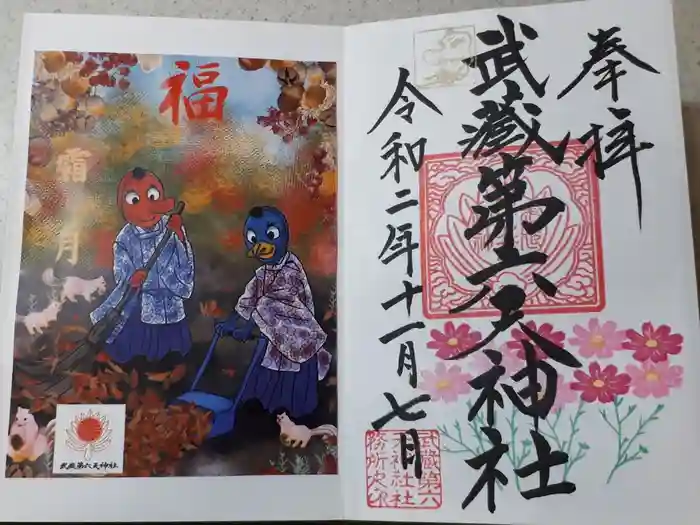 奉拝
武蔵第六天神社
令和二年十一月七日
武蔵第六
天神社社
務所之印
福
霜月
武蔵第六天神社